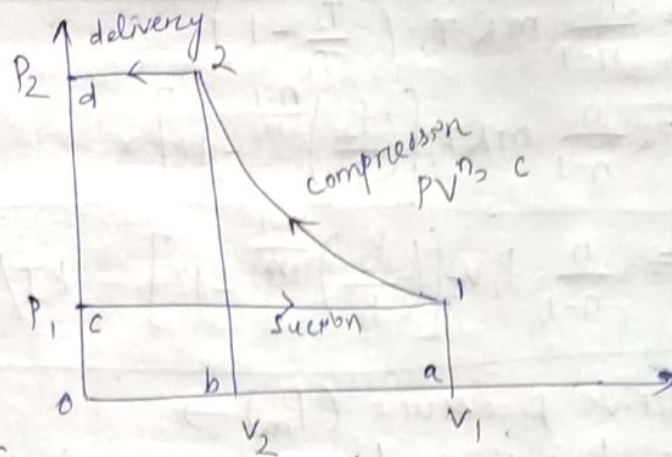 delivery
P2
d
2
compression
PVⁿ= c
P1
c
suction
1
0
b
a
V2
V1